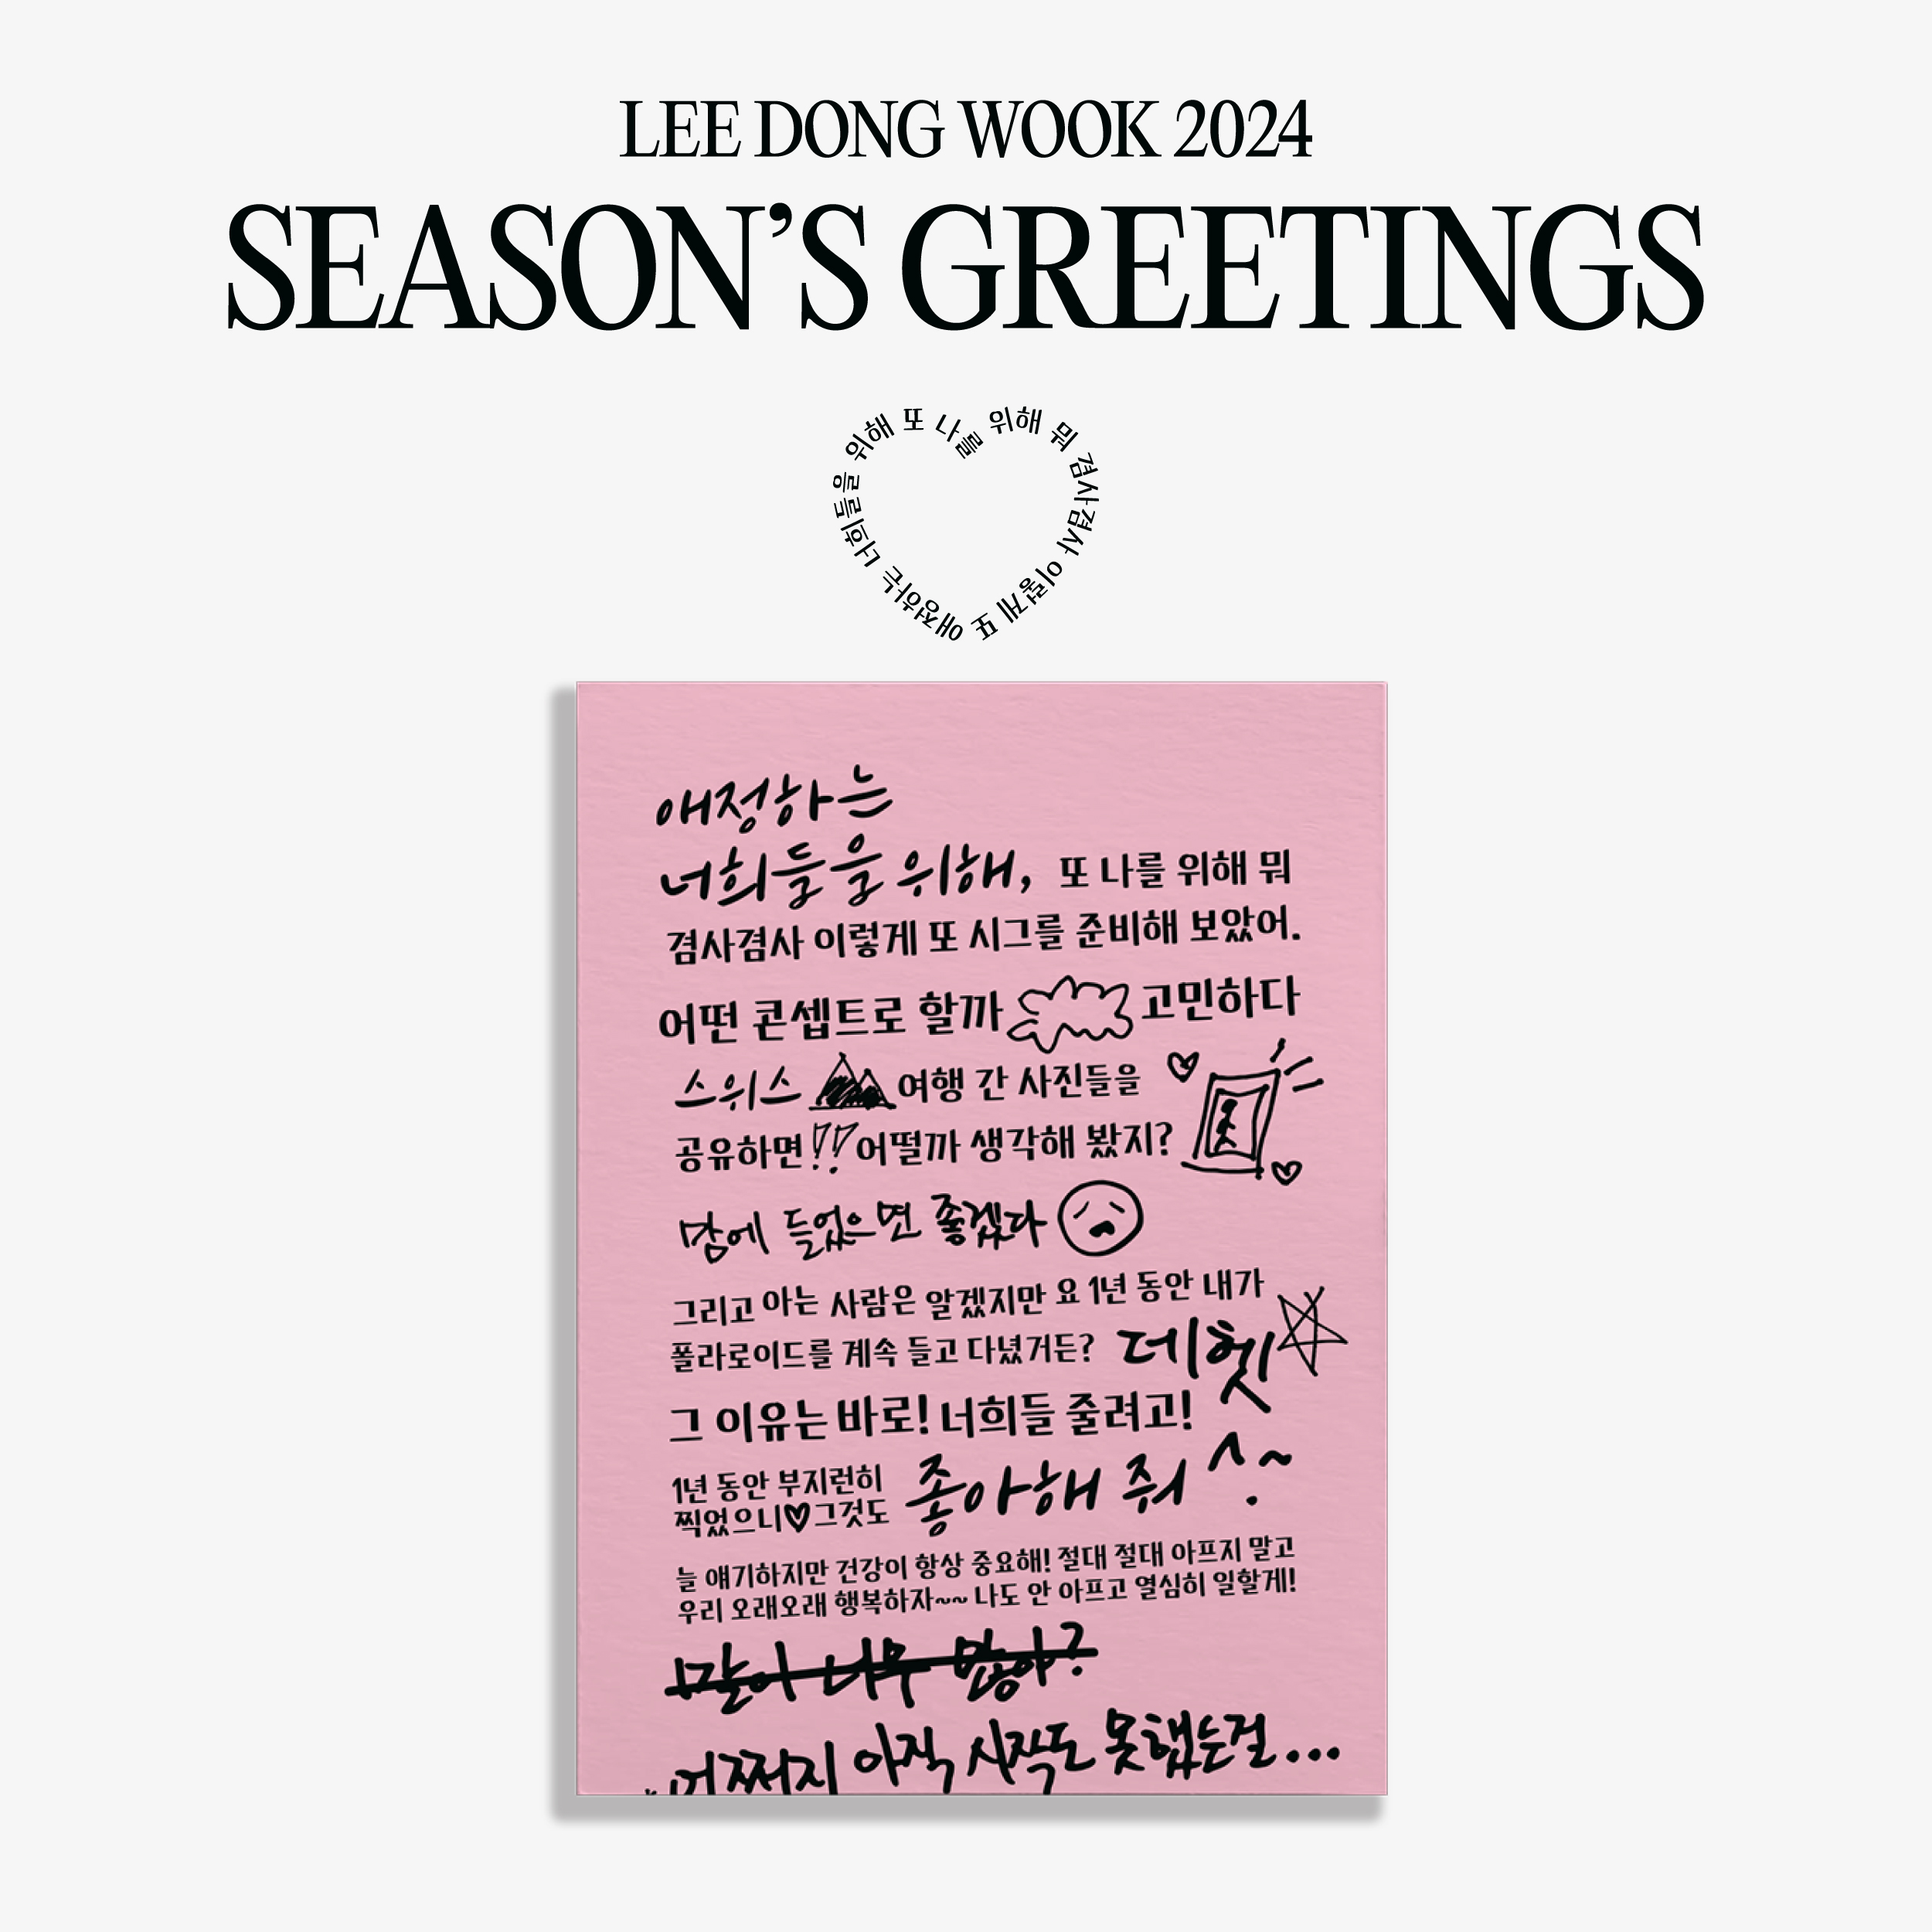 LEE DONG WOOK 2024
SEASON’S GREETINGS
애정하는 너희들을 위해 또 나를 위해 뭐 겸사겸사 이렇게 또
애정하는
너희들을 위해, 또 나를 위해 뭐
겸사겸사 이렇게 또 시그를 준비해 보았어.
어떤 콘셉트로 할까 고민하다
스위스 여행 간 사진들을
공유하면!! 어떨까 생각해 봤지?
맘에 들었으면 좋겠다
그리고 아는 사람은 알겠지만 요 1년 동안 내가
폴라로이드를 계속 들고 다녔거든? 데헷
그 이유는 바로! 너희들 줄려고!
1년 동안 부지런히
찍었으니♡그것도 좋아해 줘 ^.~
늘 얘기하지만 건강이 항상 중요해! 절대 절대 아프지 말고
우리 오래오래 행복하자~~ 나도 안 아프고 열심히 일할게!
말이 너무 많아?
어쩌지 아직 시작도 못했는걸...